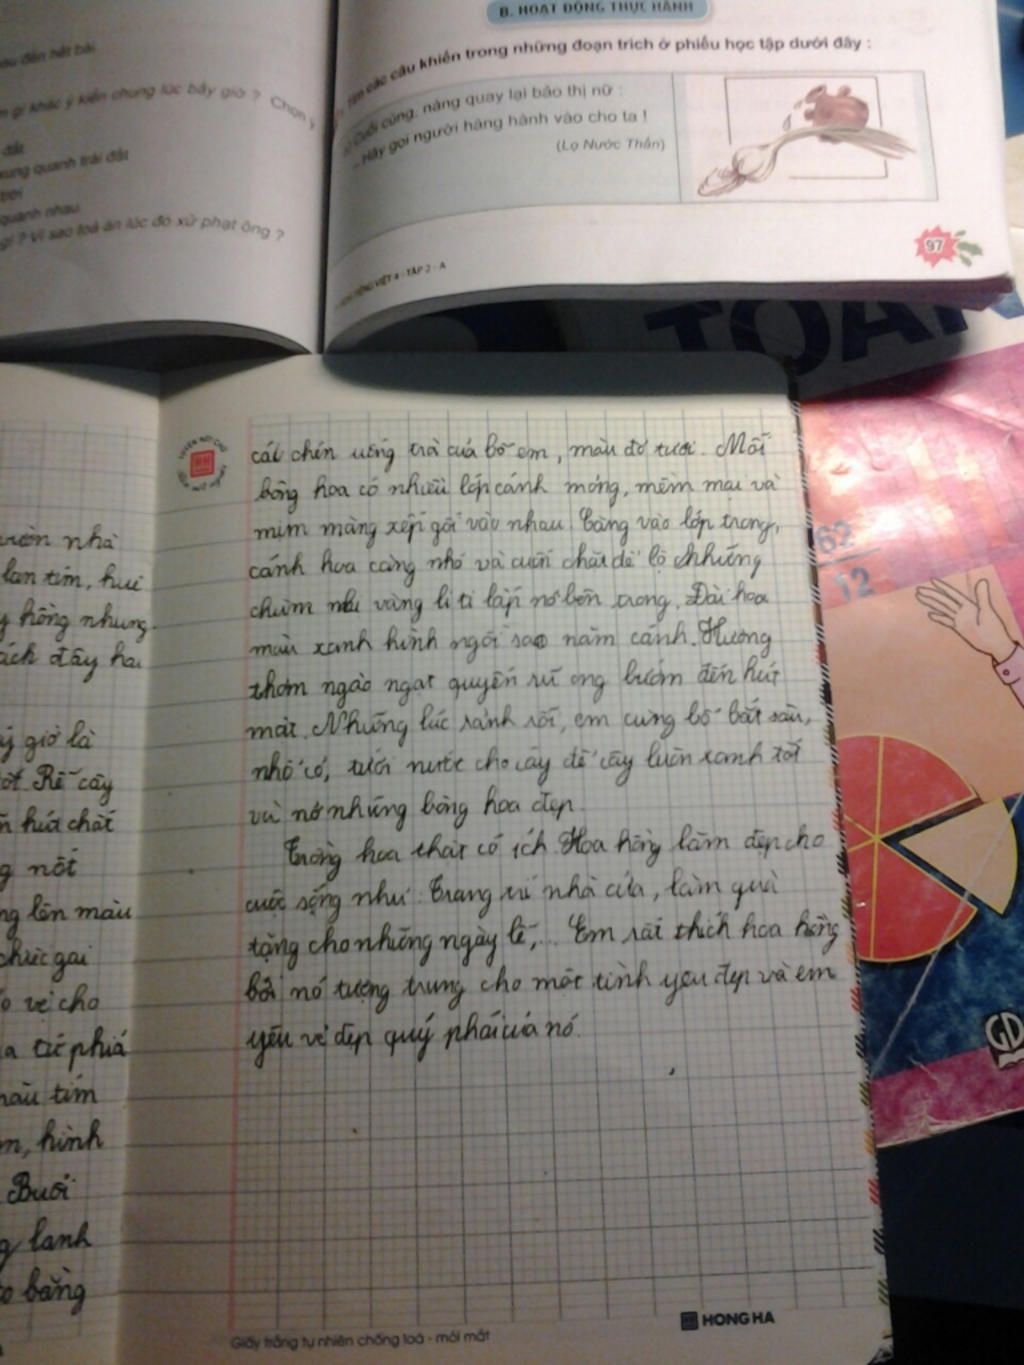 au đến hết bài
gì khác ý kiến chung lúc bấy giờ ? Chọn ý
đất
xung quanh trái đất
trời
quanh nhau
gì ? Vì sao toà án lúc đó xử phạt ông ?
B. HOẠT ĐỘNG THỰC HÀNH
Tìm các câu khiến trong những đoạn trích ở phiếu học tập dưới đây :
Cuối cùng, nàng quay lại bảo thị nữ :
– Hãy gọi người hàng hành vào cho ta !
(Lọ Nước Thần)
97
TIẾNG VIỆT 4 - TẬP 2 - A
TOÁN
62
12
GD
vườn nhà
lan tím, huệ
hồng nhung.
cách đây hai
giờ là
tốt. Rễ cây
hút chất
nốt
lên màu
chiếc gai
vệ cho
tứ phía
màu tím
hình
Buổi
lanh
bằng
cái chén uống trà của bố em, màu đỏ tươi. Mỗi
bông hoa có nhiều lớp cánh mỏng, mềm mại và
mịn màng xếp gối vào nhau. Càng vào lớp trong,
cánh hoa càng nhỏ và cuốn chặt để lộ những
chùm nhị vàng li ti lấp ló bên trong. Đài hoa
màu xanh hình ngôi sao năm cánh. Hương
thơm ngào ngạt quyến rũ ong bướm đến hút
mật. Những lúc rảnh rỗi, em cùng bố bắt sâu,
nhổ cỏ, tưới nước cho cây để cây luôn xanh tốt
và nở những bông hoa đẹp.
Trồng hoa thật có ích. Hoa hồng làm đẹp cho
cuộc sống như: Trang trí nhà cửa, làm quà
tặng cho những ngày lễ,... Em rất thích hoa hồng
bởi nó tượng trưng cho một tình yêu đẹp và em
yêu vẻ đẹp quý phái của nó.
HONG HA
Giấy trắng tự nhiên chống loá - mỏi mắt